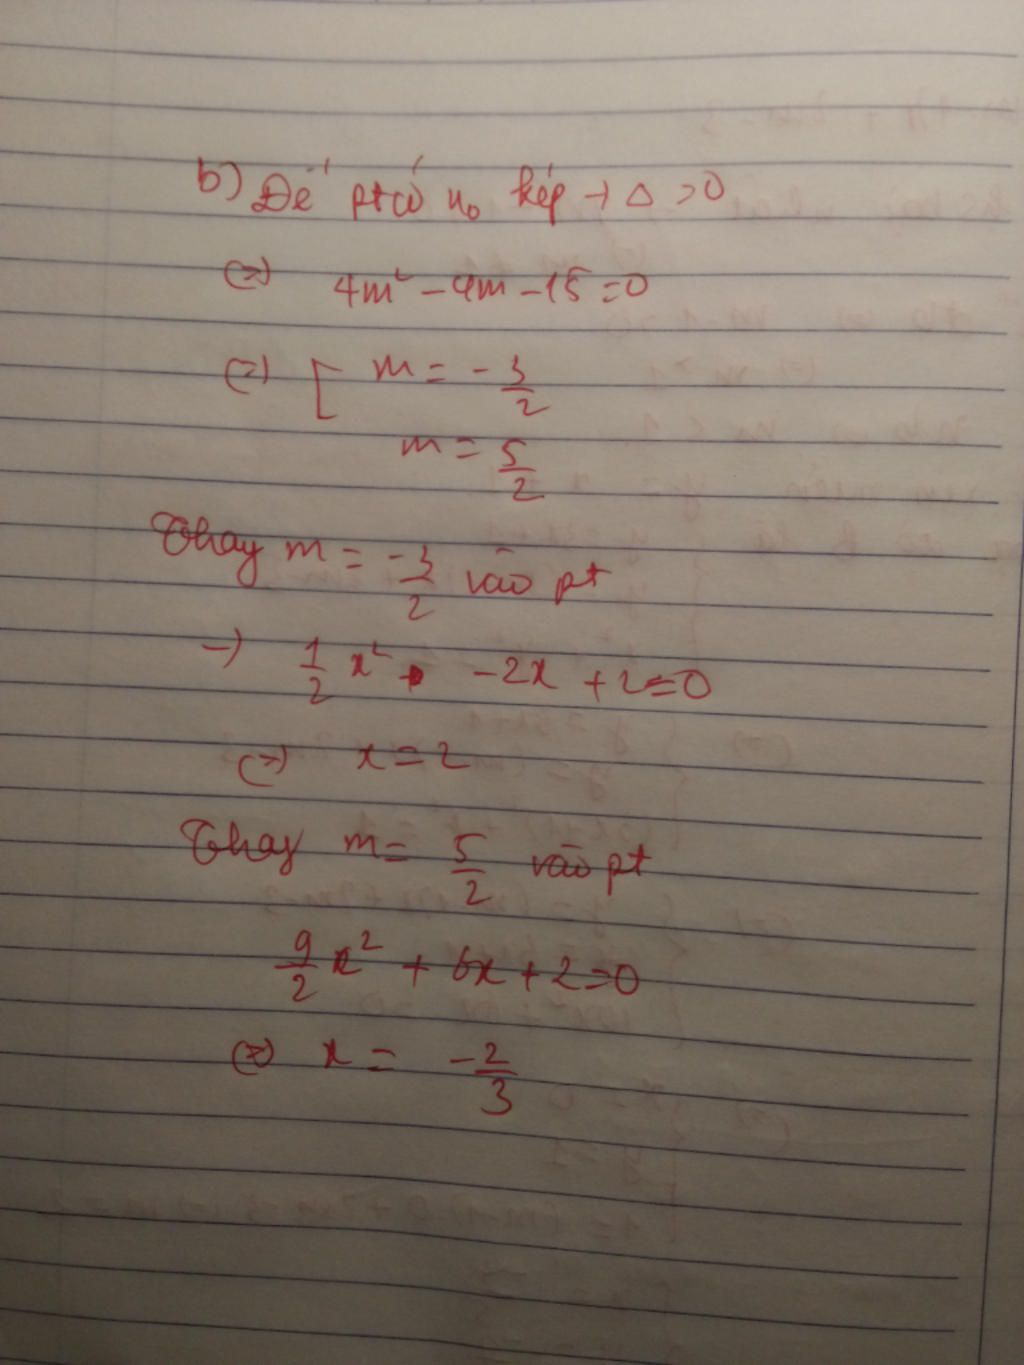 b) Để pt có no kép → Δ > 0
(=) 4m² - 4m - 15 = 0
(=) [ m = -3/2
m = 5/2
Thay m = -3/2 vào pt
→ 1/2 x² - 2x + 2 = 0
(=) x = 2
Thay m = 5/2 vào pt
9/2 x² + 6x + 2 = 0
(=) x = -2/3